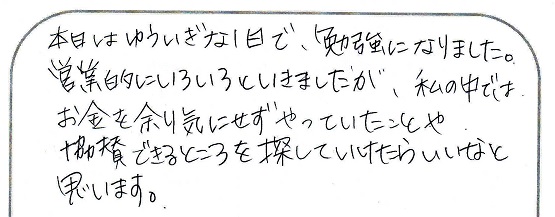 本日はゆういぎな1日で、勉強になりました。
営業的にいろいろといきましたが、私の中では
お金を余り気にせずやっていたことや
協賛できるところを探していけたらいいなと
思います。